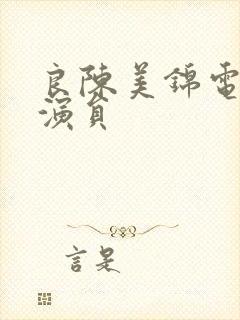 良陳美錦電
演員
言是